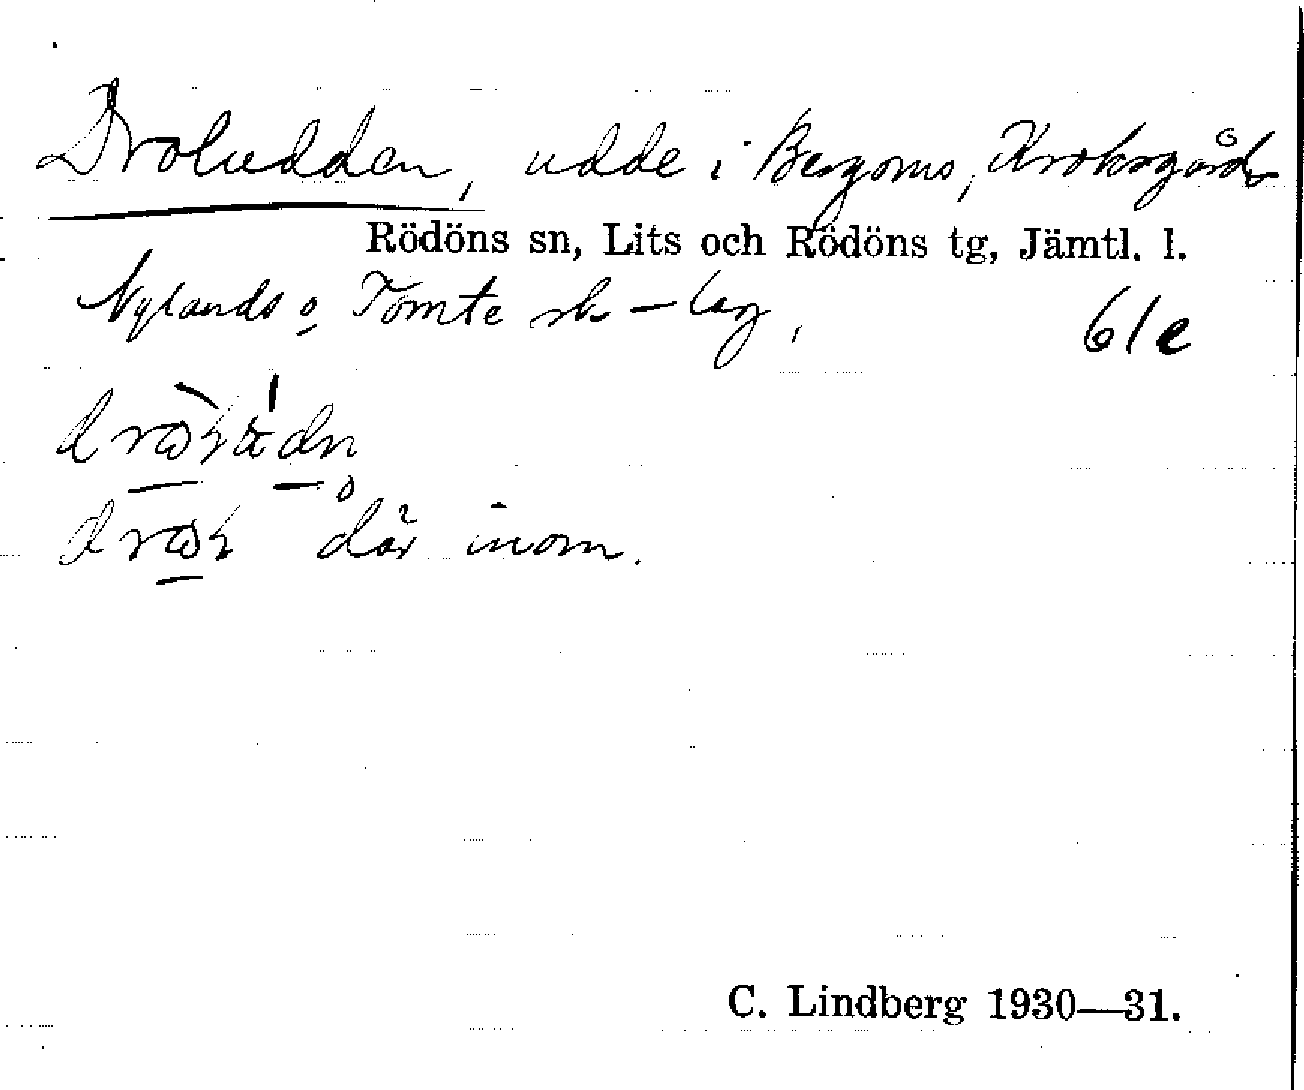 Droludden, udde i Bergoms, Kroksgårds
Rödöns sn, Lits och Rödöns tg, Jämtl. l.
Nylands o Tomte sk-lag, 61e
där inom.
C. Lindberg 1930—31.